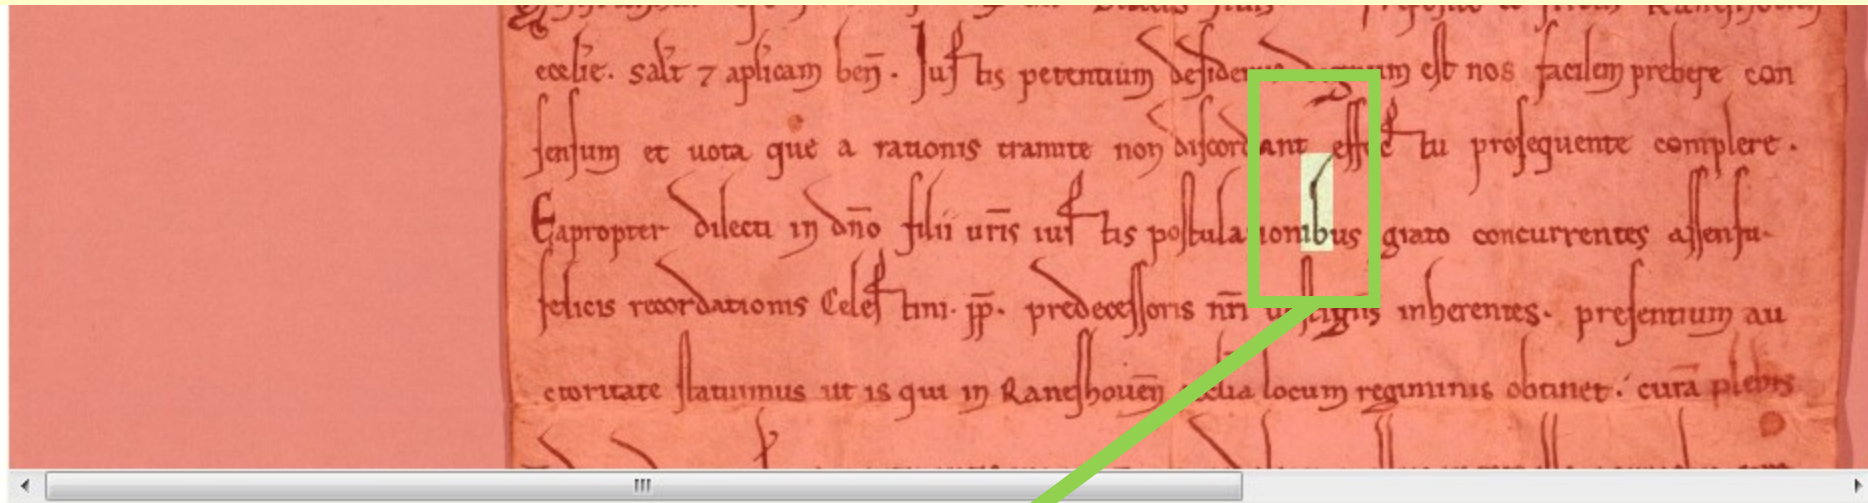 ecclie. salt 7 aplicam ben̄. Iustis petentium desideriis dignum est nos facilem prebere con
sensum et uota que a rationis tramite non discordant effectu prosequente complere.
Eapropter dilecti in dn̄o filii ur̄is iustis postulationibus grato concurrentes assensu.
felicis recordationis Celestini. pp̄. predecessoris nr̄i uestigiis inherentes. presentium au
ctoritate statuimus ut is qui in Ranshouen̄ ecclia locum regiminis obtinet. curā plebis